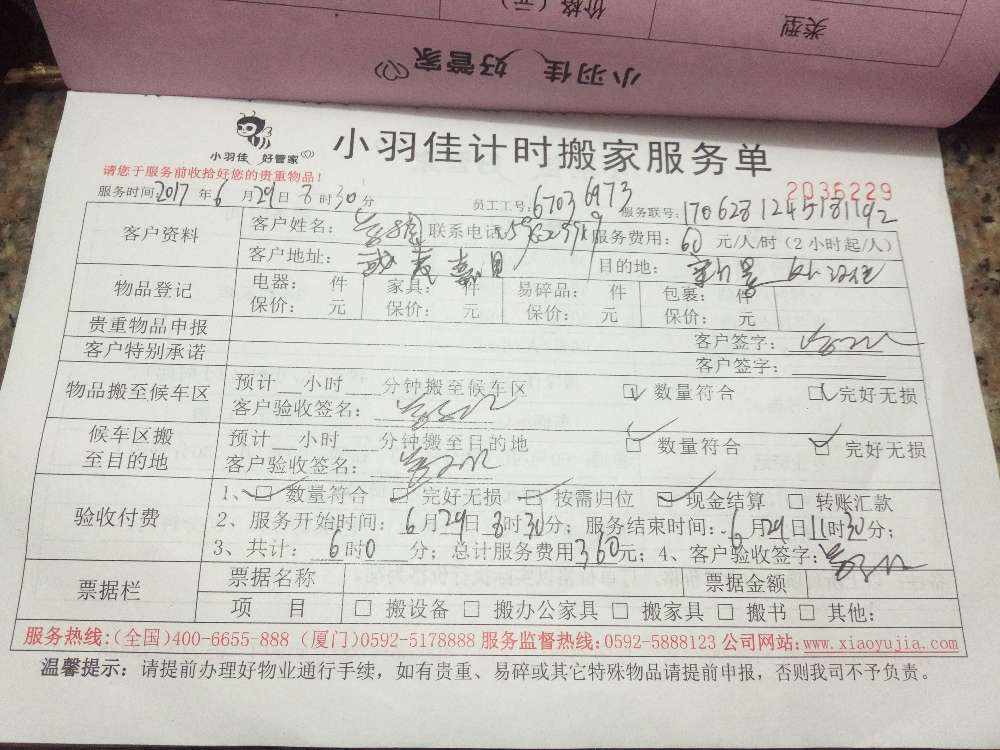 类型
价格（元）
小羽佳 好管家
小羽佳 好管家
小羽佳计时搬家服务单
请您于服务前收拾好您的贵重物品！
2036229
服务时间:2017年6月29日8时30分 员工工号:6703 6973 服务联号:170628124518192
客户资料
客户姓名： 联系电话: 服务费用：60元/人/时（2小时起/人）
客户地址： 目的地：
物品登记
电器： 件 家具： 件 易碎品： 件 包裹： 件
保价： 元 保价： 元 保价： 元 保价： 元
贵重物品申报 客户签字：
客户特别承诺 客户签字：
物品搬至候车区
预计 小时 分钟搬至候车区 数量符合 完好无损
客户验收签名：
候车区搬至目的地
预计 小时 分钟搬至目的地 数量符合 完好无损
客户验收签名：
验收付费
1、□ 数量符合 □ 完好无损 □ 按需归位 □ 现金结算 □ 转账汇款
2、服务开始时间：6月29日8时30分；服务结束时间：6月29日11时30分；
3、共计：6时0分；总计服务费用360元；4、客户验收签字：
票据栏
票据名称 票据金额
项 目 □ 搬设备 □ 搬办公家具 □ 搬家具 □ 搬书 □ 其他：
服务热线:(全国)400-6655-888 (厦门)0592-5178888 服务监督热线:0592-5888123 公司网站:www.xiaoyujia.com
温馨提示：请提前办理好物业通行手续，如有贵重、易碎或其它特殊物品请提前申报，否则我司不予负责。